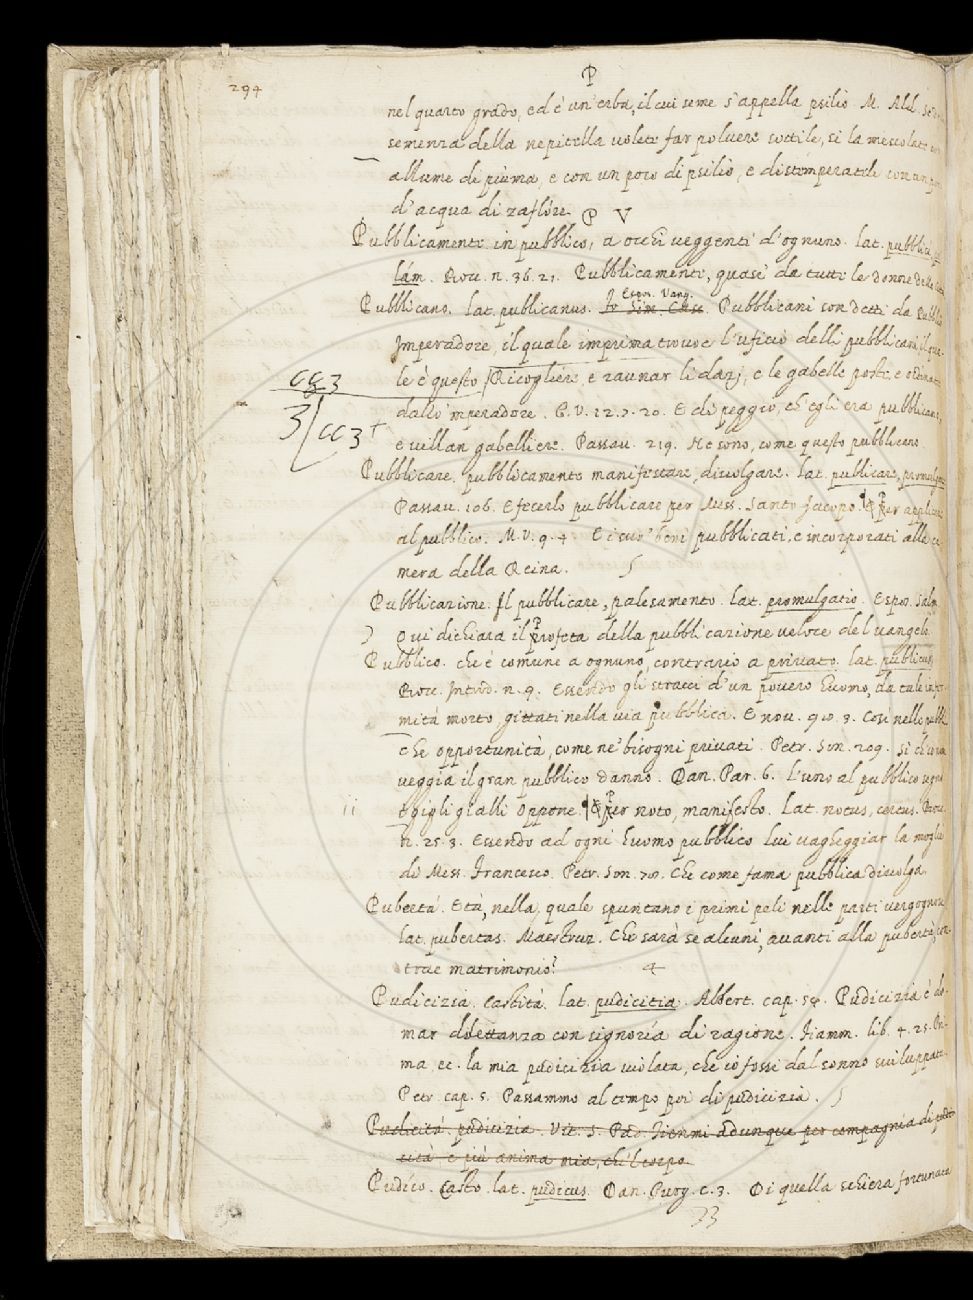 294
P
nel quarto grado, ed è un'erba, il cui seme s'appella psilio. M. Ald. Se
semenza della nepitella volete far polvere sottile, si la mescolate
allume di piuma, e con un poco di psilio, e distemperatele con un
d'acqua di zafflore.
P V
Pubblicamente in pubblico, a occhi veggenti d'ognuno. Lat. public
lám. Bocc. n. 36. 21. Pubblicamente, quasi da tutte le donne della
Espos. Vang.
Pubblicano. Lat. publicanus. Pubblicani son detti da Pubblio
Imperadore, il quale imprima trovoe l'uficio delli pubblicani, il qua
le è questo, Ricogliere, e raunar li dazj, e le gabelle poste, e ordinate
cc3
dallo 'mperadore. G. V. 12. 7. 20. E di peggio, ch'egli era pubblicano,
3/cc3 +
e villan gabelliere. Passav. 219. Ne sono, come questo pubblicano.
Pubblicare, pubblicamente manifestare, divolgare. Lat. publicare, promulgare
Passav. 106. E fecerlo pubblicare per Mess. Santo Jacopo. ¶ Per applicare
al pubblico. M. V. 9. 4. E i suo' beni pubblicati, e incorporati alla ca
mera della Reina.
Pubblicazione. Il pubblicare, palesamento. Lat. promulgatio. Espos. Salm.
Qui dichiara il profeta della pubblicazione veloce del vangelo.
Pubblico. che è comune a ognuno, contrario a privato. Lat. publicus,
Bocc. Introd. n. 9. Essendo gli stracci d'un povero huomo, da tale infer
mità morto, gittati nella via pubblica. E nov. 98. 3. Così nelle pubbli
che opportunità, come ne' bisogni privati. Petr. Son. 209. Si ch'io non
veggia il gran pubblico danno. Dan. Par. 6. L'uno al pubblico segno
I gigli gialli oppone. ¶ Per noto, manifesto. Lat. notus, certus. Bocc.
n. 25. 3. Essendo ad ogni huomo pubblico lui vagheggiar la moglie
di Mess. Francesco. Petr. Son. 78. Che come fama pubblica divolga.
Pubertà. Età, nella quale spuntano i primi peli nelle parti vergognose
Lat. pubertas. Maestruz. Che sarà se alcuni, avanti alla pubertà, con
trae matrimonio?
Pudicizia. Castità. Lat. pudicitia. Albert. cap. 58. Pudicizia è do-
mar dilettanza con signoria di ragione. Fiamm. lib. 4. 25. Pri-
ma, ec. la mia pudicizia violata, che io fossi dal sonno sviluppata.
Petr. cap. 5. Passammo al tempo poi di pudicizia.
Pudicità. pudicizia. Vit. S. Pad. Tiemmi adunque per compagnia di pudi
cità, e più anima mia, che 'l corpo.
Pudico. Casto. Lat. pudicus. Dan. Purg. c. 3. Di quella schiera fortunata